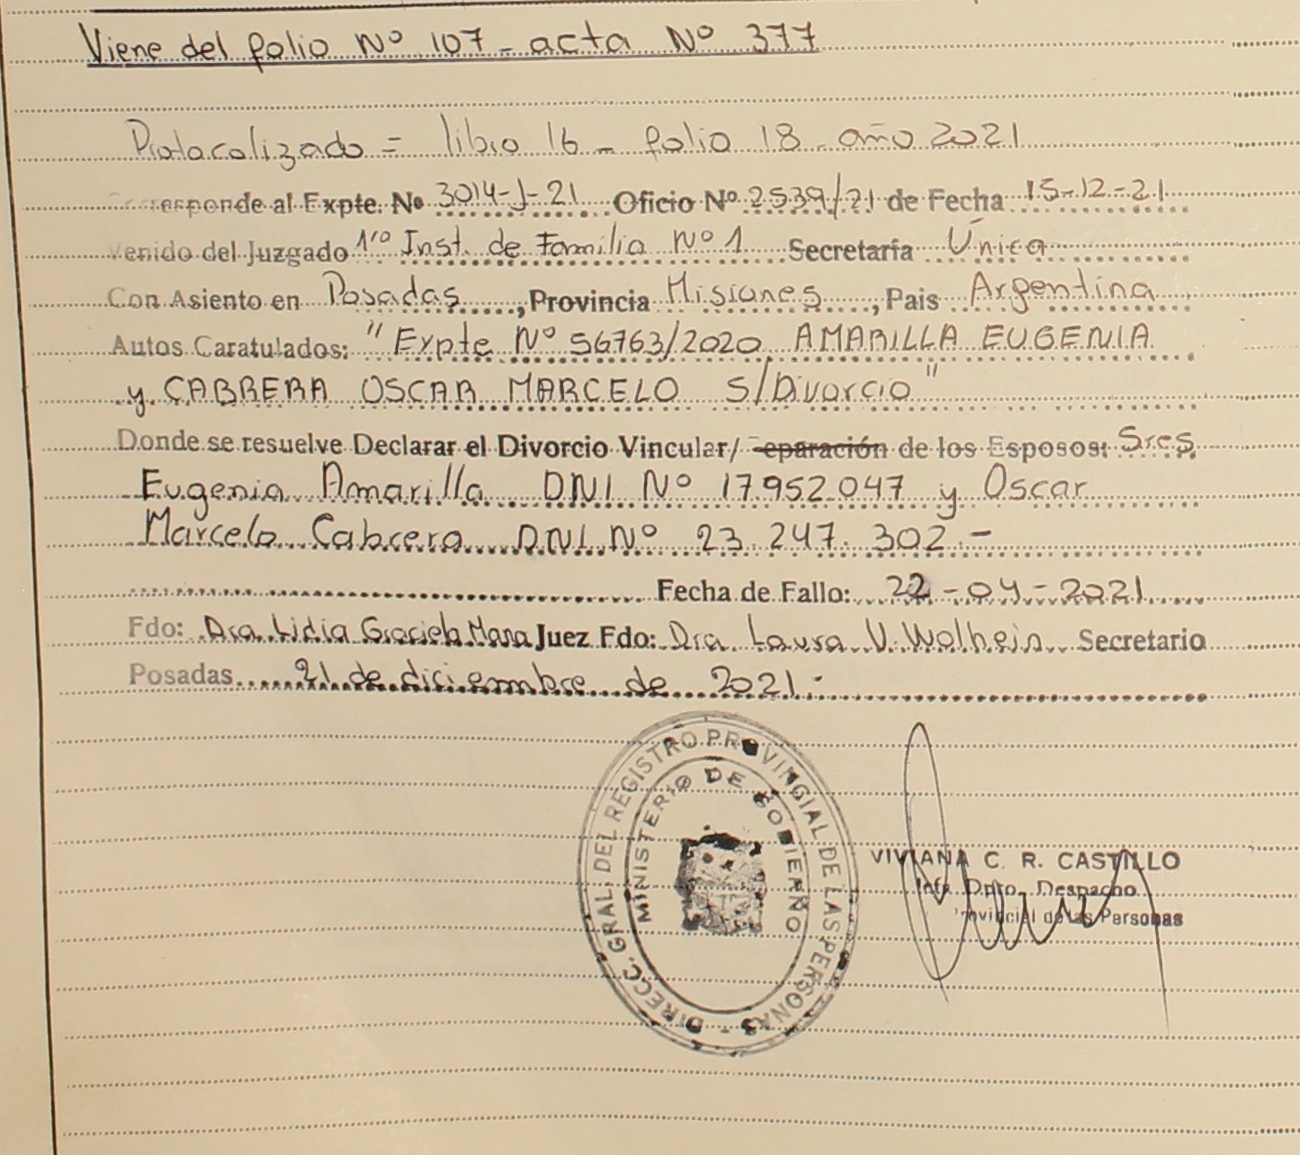 Viene del folio Nº 107 - acta Nº 377
Protocolizado = libro 16 - folio 18 - año 2021
Corresponde al Expte. Nº 3014-J-21 Oficio Nº 2539/21 de Fecha 15-12-21
Venido del Juzgado 1ra Inst. de Familia Nº 1 Secretaría Única
Con Asiento en Posadas, Provincia Misiones, Pais Argentina
Autos Caratulados: "Expte Nº 56763/2020 AMARILLA EUGENIA
y CABRERA OSCAR MARCELO S/Divorcio"
Donde se resuelve Declarar el Divorcio Vincular/ Separación de los Esposos: Sres
Eugenia Amarilla DNI Nº 17.952.047 y Oscar
Marcelo Cabrera DNI Nº 23.247.302.-
Fecha de Fallo: 22-04-2021
Fdo: Dra. Lidia Graciela Juez Fdo: Dra. Laura V. Secretario
Posadas 21 de diciembre de 2021.-
DIRECC. GRAL. DEL REGISTRO PROVINCIAL DE LAS PERSONAS
MINISTERIO DE GOBIERNO
VIVIANA C. R. CASTILLO
Dpto. Despacho
Provincial de las Personas